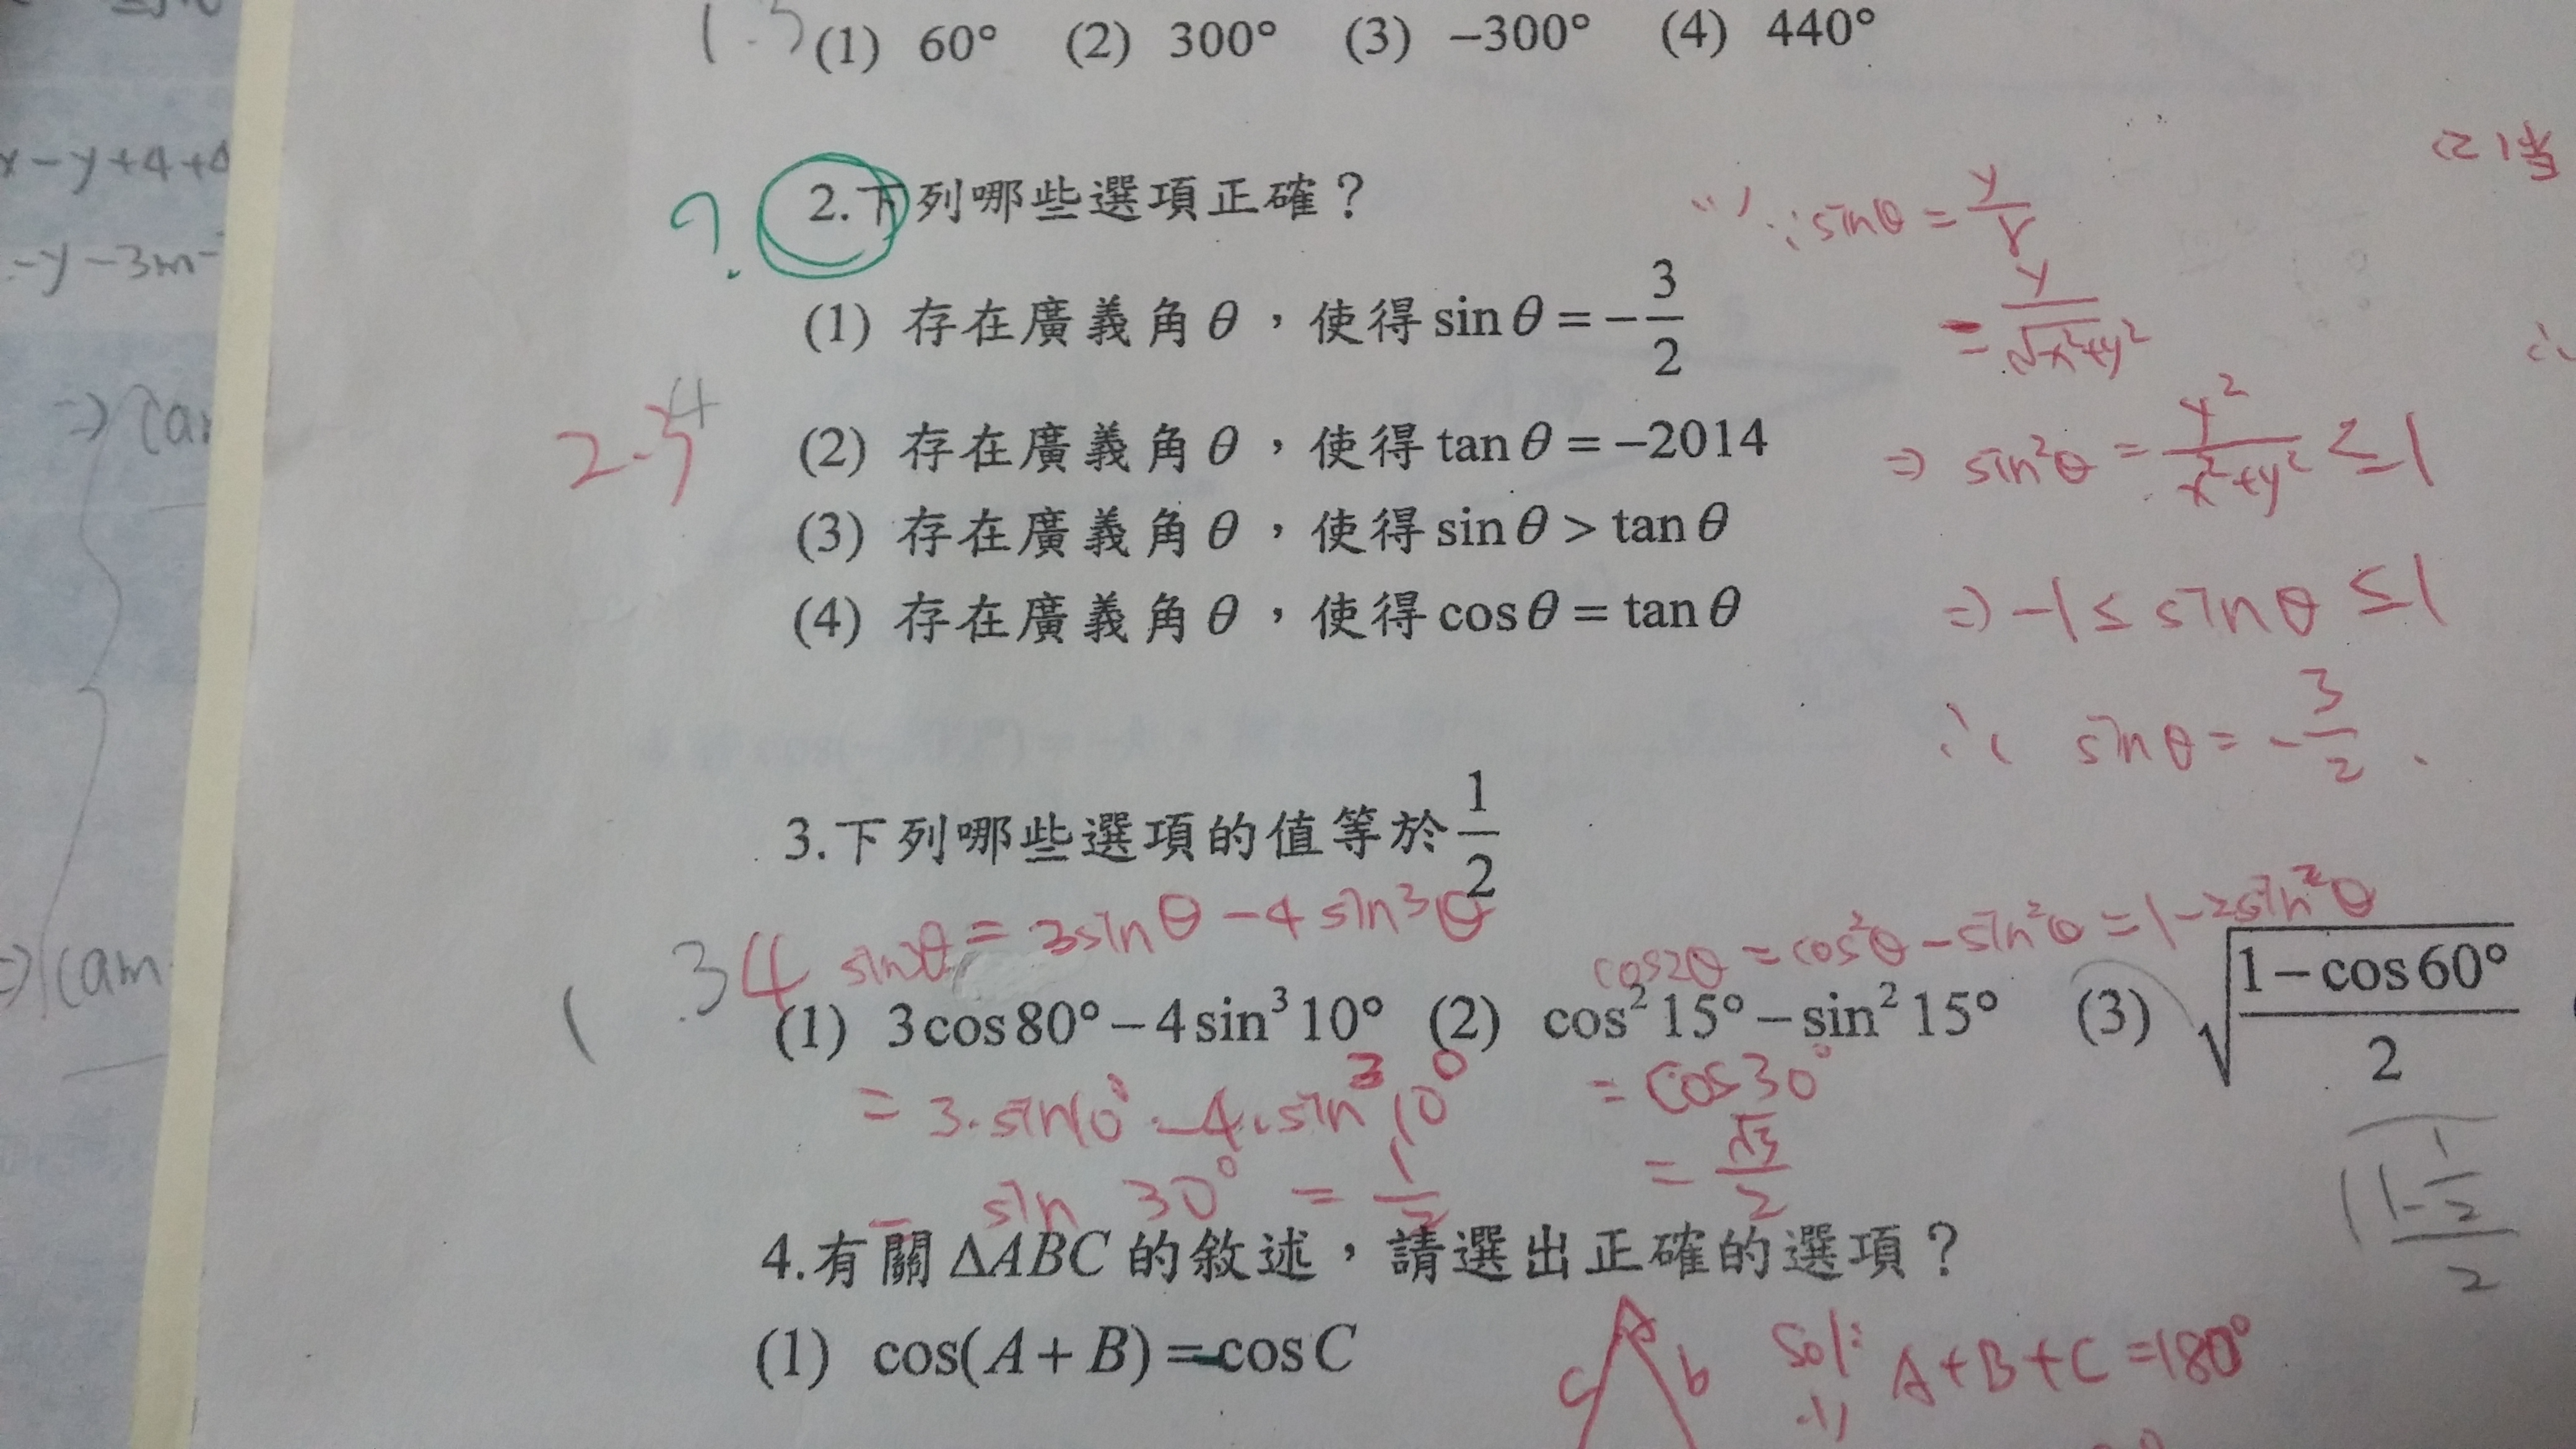 (1) 60° (2) 300° (3) −300° (4) 440°
x-y+4+4
-y-3m-
2.下列哪些選項正確？
?
(1) 存在廣義角θ，使得sinθ=−3/2
(2) 存在廣義角θ，使得tanθ=−2014
(3) 存在廣義角θ，使得sinθ>tanθ
(4) 存在廣義角θ，使得cosθ=tanθ
∵sinθ=y/r
=y/√x²+y²
⇒ sin²θ=y²/x²+y²≤1
⇒ -1≤sinθ≤1
∴ sinθ=-3/2
(2)当
∴
3.下列哪些選項的值等於1/2
34 sin3θ=3sinθ-4sin³θ
cos2θ=cos²θ-sin²θ=1-2sin²θ
(1) 3cos80°−4sin³10° (2) cos²15°−sin²15° (3) √1−cos60°/2
=3·sin10°-4·sin³10°
=cos30°
= sin 30° = 1/2
=√3/2
1-1/2
2
4.有關ΔABC的敘述，請選出正確的選項？
(1) cos(A+B)=-cosC
A
c b
Sol: A+B+C=180°